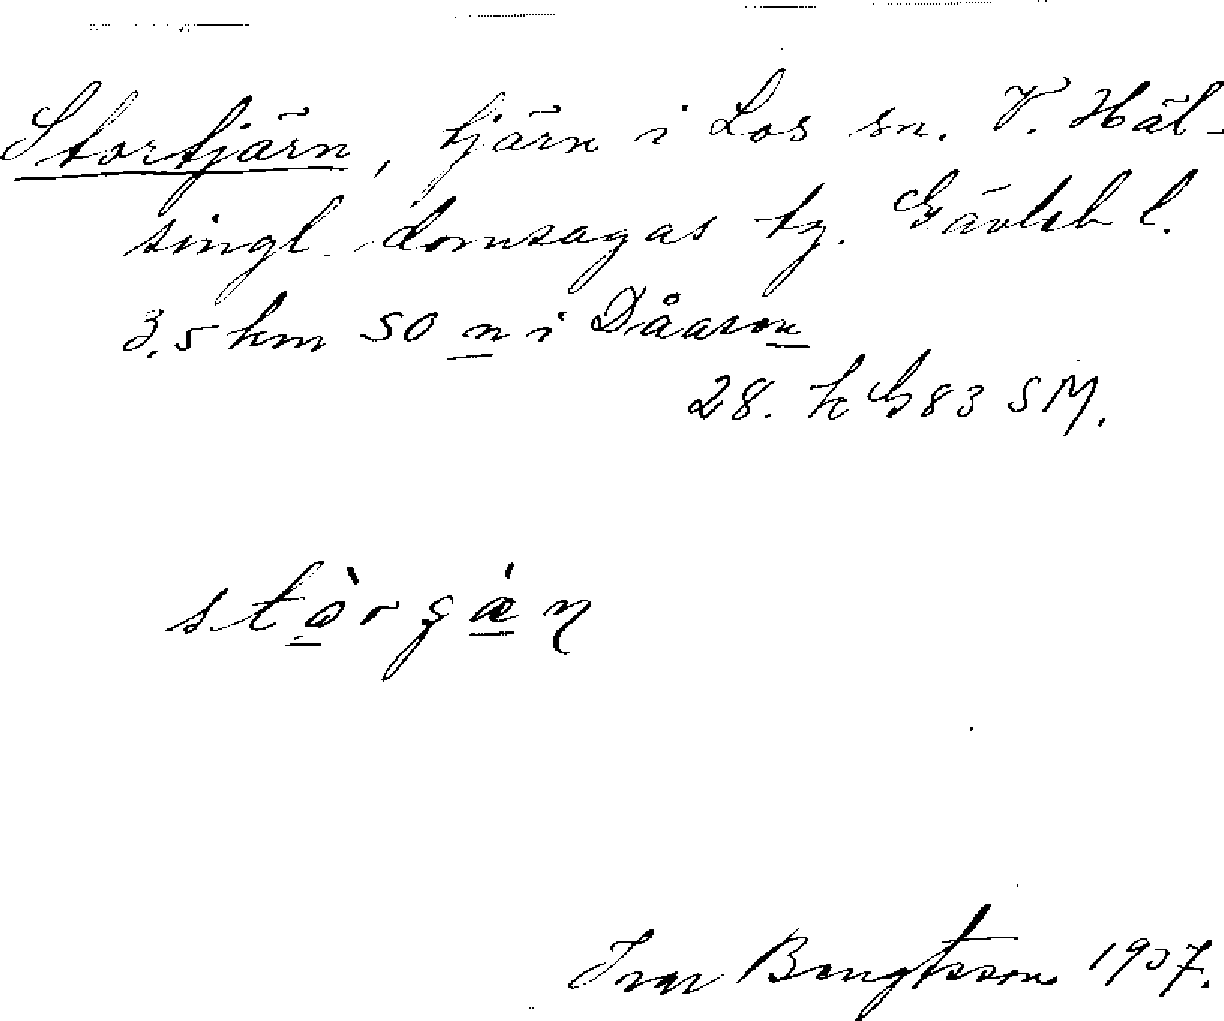 Stortjärn, tjärn i Los sn. V. Häl-
singl. domsagas tg. Gävleb l.
3,5 km SO n i Dåasen
28. h G 83 SM.
stòrgǽn
Ivar Bengtsson 1937.